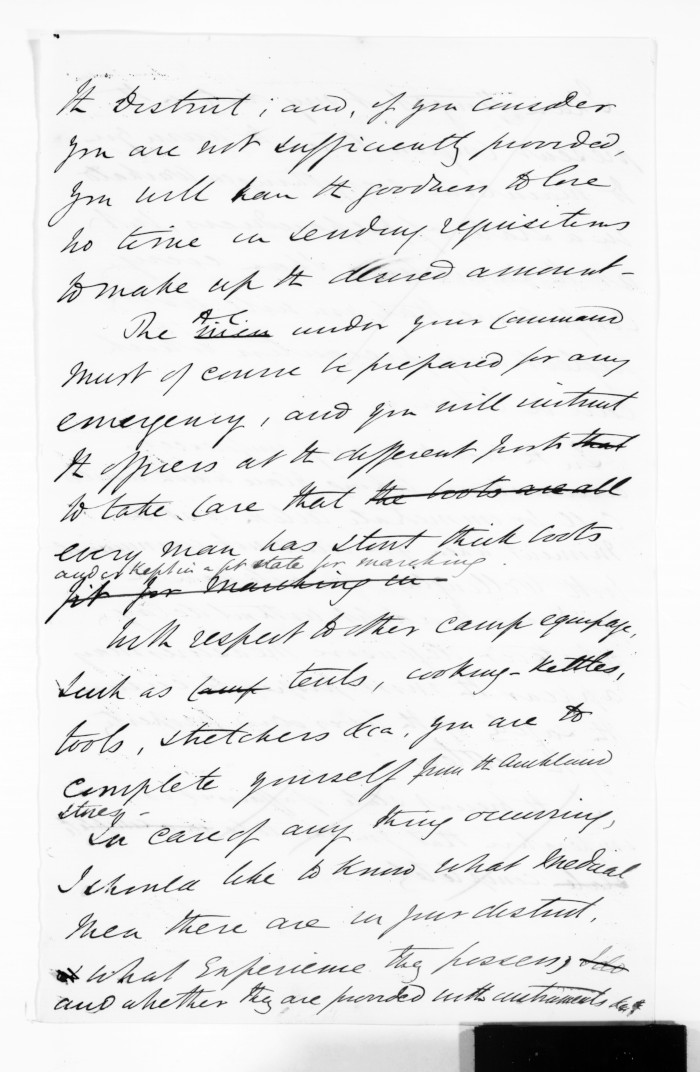 the District; and, if you consider
you are not sufficiently provided,
you will have the goodness to lose
no time in sending requisitions
to make up the desired amount—
The A C men under your Command
must of course be prepared for any
emergency, and you will instruct
the officers at the different posts that
to take care that the boots are all
every man has stout thick boots
and is kept in a fit state for marching
fit for marching in
With respect to other camp equipage,
such as camp tents, cooking-kettles,
tools, stretchers &ca, you are to
complete yourself from the Auckland
stores—
In case of any thing occurring,
I should like to know what medical
men there are in your district,
what experience they possess,
and whether they are provided with instruments &ca